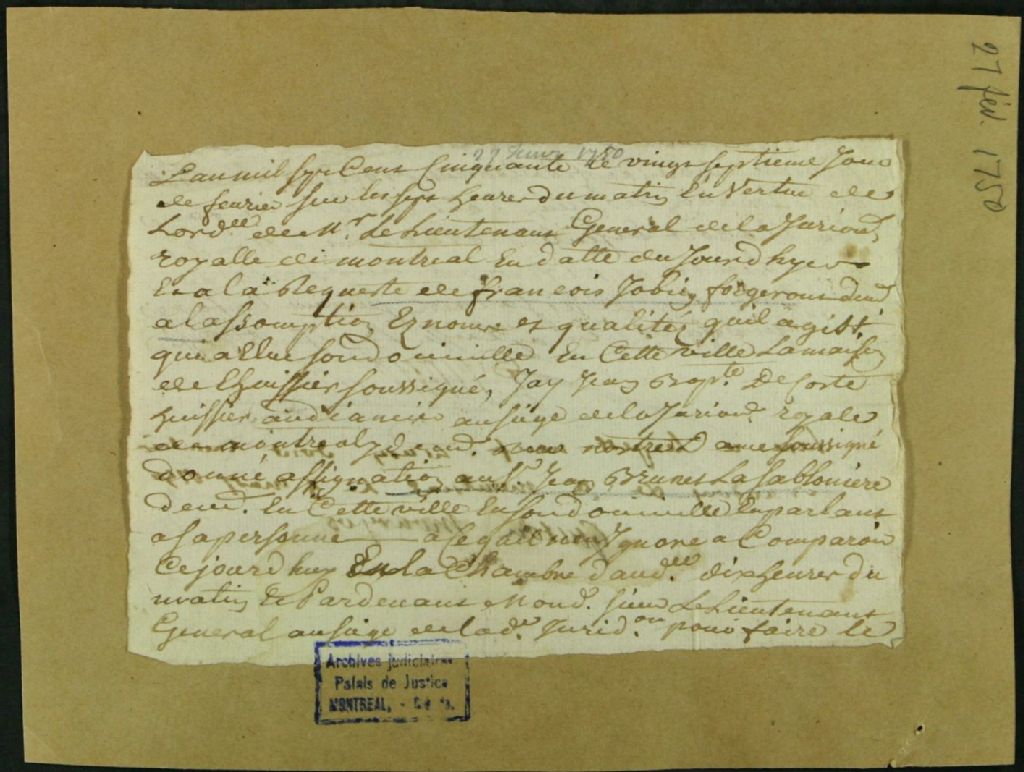 27 fevr 1750
L'an mil Sept Cent Cinquante le vingt Septieme Jour
de fevrier Sur les Sept heures du matin En Vertu de
Lord.ce de Mr. Le Lieutenant General de la Jurison.
royalle de montreal En datte du Jourd'huy
Et a la Requeste de francois Jobin forgeron dem.
a lassomption Es noms et qualités quil agist
qui a Elue Son domicille En Cette ville La maison
de Lhuissier Soussigné, Jay Jean Bapte. Decoste
huissier audiancier au Siege de la Jurisd. royale
de montreal y demt. Soussigné
donné assignation au Sr. Jean Brunet La Sabloniere
demt. En Cette ville En Son domicille En parlant
a Sa personne a Ce quil nen Ignore a Comparoir
Ce jourd'huy En La Chambre daud.ce dix heures du
matin Et Pardevant Mond. Sieur Le Lieutenant
General au Siege de lad. Jurid.on pour faire le
27 fév. 1750
Archives judiciaires
Palais de Justice
MONTREAL,